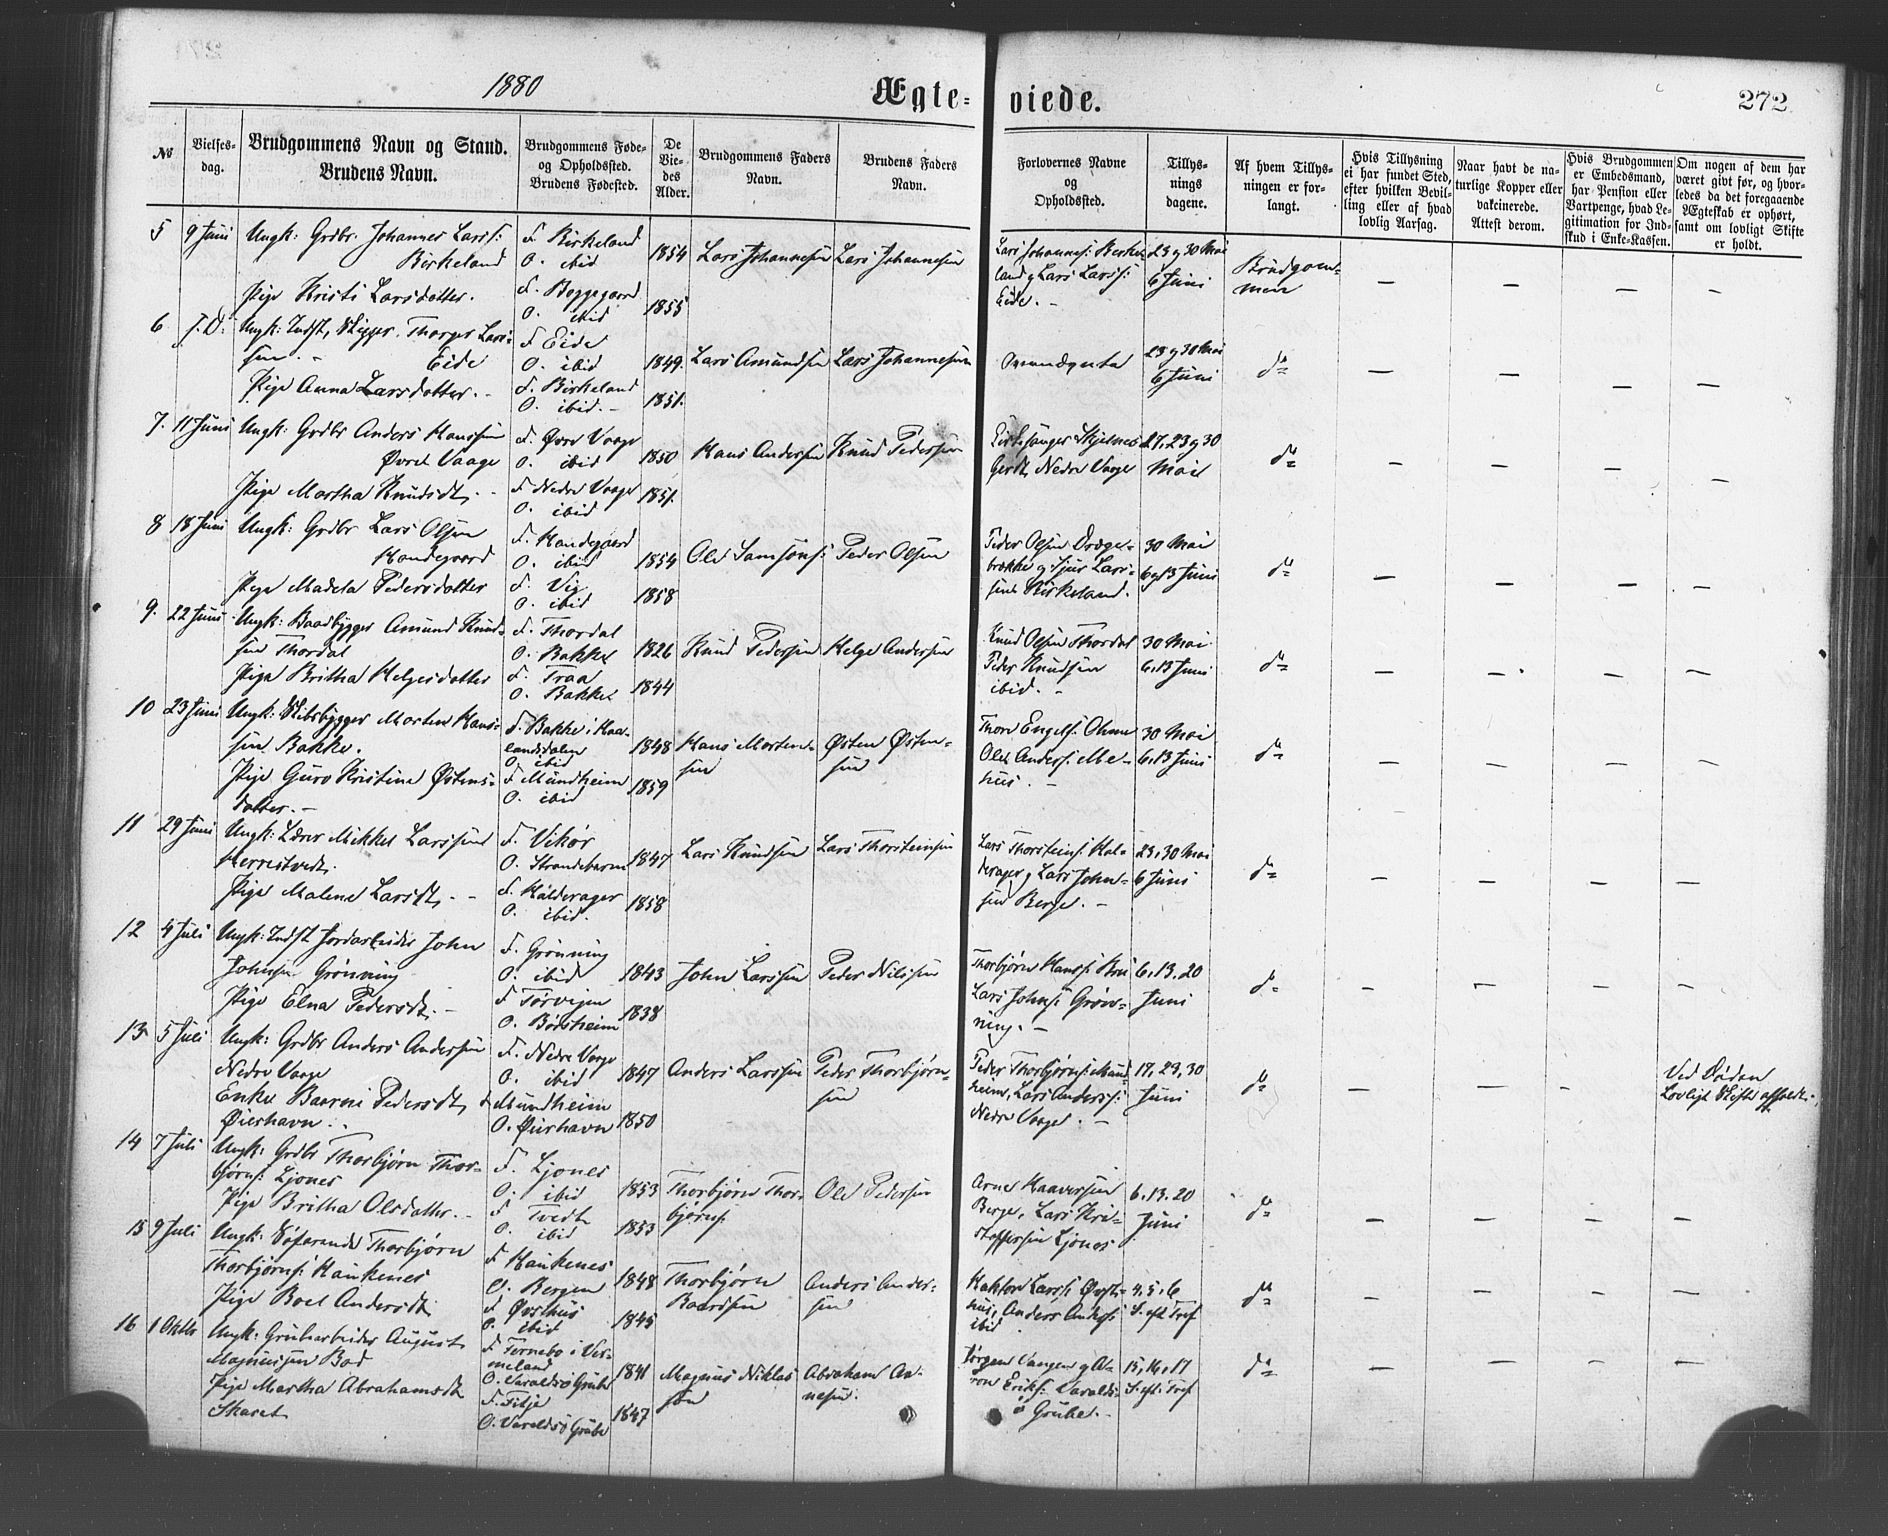 1880
Ægte-
viede.
272
No
Vielses-
dag.
Brudgommens Navn og Stand.
Brudens Navn.
Brudgommens Føde-
og Opholdssted.
Brudens Fødested.
De
Vie-
des
Alder.
Brudgommens Faders
Navn.
Brudens Faders
Navn.
Forlovernes Navne
og
Opholdssted.
Tillys-
nings
dagene.
Af hvem Tillys-
ningen er for-
langt.
Hvis Tillysning
ei har fundet Sted,
efter hvilken Bevil-
ling eller af hvad
lovlig Aarsag.
Naar havt de na-
turlige Kopper eller
vakcinerede.
Attest derom.
Hvis Brudgommen
er Embedsmand,
har Pension eller
Vartpenge, hvad Le-
gitimation for Ind-
skud i Enke-Kassen.
Om nogen af dem har
været givt før, og hvor-
ledes da det foregaaende
Ægteskab er ophørt,
samt om lovligt Skifte
er holdt.
5 9 Juni Ungk: Grdbr. Johannes Larss:
Birkeland
Pige Kristi Larsdatter.
F. Birkeland
O. ibid
F.
O. ibid
1854
1855
Lars Johannesen
Lars Johannesen
Lars Johanness: Birke-
land og Lars Larss:
Eide. -
23 og 30 Mai
6 Juni
Brudgom-
men
6 s. D: Ungk: Indst, Skipper Thorger Lars-
sen. - Eide
Pige Anna Larsdatter. -
F. Eide
O. ibid
F. Birkeland
O. ibid. -
1849.
1851.
Lars Amundsen
Lars Johannesen
23 og 30 Mai
6 Juni
do
7. 11 Juni Ungk: Grdbr Anders Hanssen
Øvre Vaage
Pige Martha Knudsdt. -
F. Øvre Vaage
O. ibid
F. Nedre Vaage
O. ibid
1850
1851.
Hans Andersen
Knud Pedersen
Kirkesanger Skjelnes
Gerdt, Nedre Vaage
17, 23 og 30
Mai
do
8 18 Juni Ungk: Grdbr Lars Olsen
Handegaard
Pige Madela Pedersdatter
F. Handegaard
O. ibid
F. Vig
O. ibid
1854
1858
Ole Samsons:
Peder Olsen
Peder Olsen Drage-
brække og Sjur Lars-
sen Birkeland.
30 Mai
6 og 13 Juni
do
9. 22 Juni Ungk: Baadbygger Amund Knud-
sen Thordal
Pige Britha Helgesdatter
F. Thordal
O. Bakke
F. Traa
O. Bakke
1826
1844
Knud Pedersen
Helge Andersen
Knud Olsen Thordal
Peder Knudsen
ibid. -
30 Mai
6, 13 Juni
do
10 23 Juni Ungk: Skibsbygger Morten Hans-
sen Bakke.
Pige Guro Kristine Østens-
datter. -
F. Bakke i Haa-
landsdalen
O. ibid
F. Mundheim
O. ibid
1848
1859
Hans Morten-
sen
Østen Østen-
sen
Thore Engels: Ohme
Ole Anders: Me-
hus. -
30 Mai
6, 13 Juni
do
11 29 Juni Ungk: Lærer Mikkel Larssen
Herrestvedt.
Pige Malene Larsdt. -
F. Vikør
O. Strandebarm
F. Halderager
O. ibid.
1847
1858
Lars Knudsen
Lars Thorsteinsen
Lars Thorsteins: Hal-
derager og Lars John-
sen Berge. -
23, 30 Mai
6 Juni
do
12 4 Juli Ungk: Indst Jordarbeider John
Johnsen Grønning
Pige Elna Pedersdt. -
F. Grønning
O. ibid
F. Tørvigen
O. Børsheim
1843
1838
John Larssen
Peder Nilssen
Thorbjørn Hanss:
Lars Johns: Grøn-
ning. -
6, 13, 20
Juni
do
13 5 Juli Ungk: Grdbr Anders Anderssen
Nedre Vaage
Enke Baarni Pedersdt
Øierhavn.
F. Nedre Vaage
O. ibid
F. Mundheim
O. Øierhavn
1847
1850
Anders Larssen
Peder Thorbjørn-
sen
Peder Thorbjørns: Mund-
heim, Lars Anderss:
Nedre Vaage. -
Juni
do
Ved Døden
Lovligt Skifte afholdt.
14 7 Juli Ungk: Grdbr Thorbjørn Thor-
bjørns: Ljones
Pige Britha Olsdatter. -
F. Ljones
O. ibid
F. Tvedt
O. ibid
1853
1853
Thorbjørn Thor-
bjørns:
Ole Pedersen
Arne Haaversen
Berge, Lars Kri-
stoffersen Ljones
6, 13, 20
Juni
do
15 9 Juli Ungk: Søfarende Thorbjørn
Thorbjørns: Haukenes
Pige Boel Andersdt.
F. Haukenes
O. Bergen
F. Øvsthus
O. ibid
1848
1845
Thorbjørn
Baardsen
Anders Anders-
sen
Haktor Larss: Øvst-
hus, Anders Anderss:
ibid
4, 5, 6
S. eft. Tref
do
16 1 Oktbr Ungk: Grubearbeider August
Magnussen Bod
Pige Martha Abrahamsdt
Skaret
F. Fernebo i Ver-
meland
O. Varaldsø Grube
F. Fitje
O. Varaldsø Grube
1841
1847
Magnus Niklas-
søn
Abraham Ar-
nesen.
Jørgen Vangen og A-
ron Eriks: Varalds-
ø Grube. -
15, 16, 17
S. eft. Tref
do